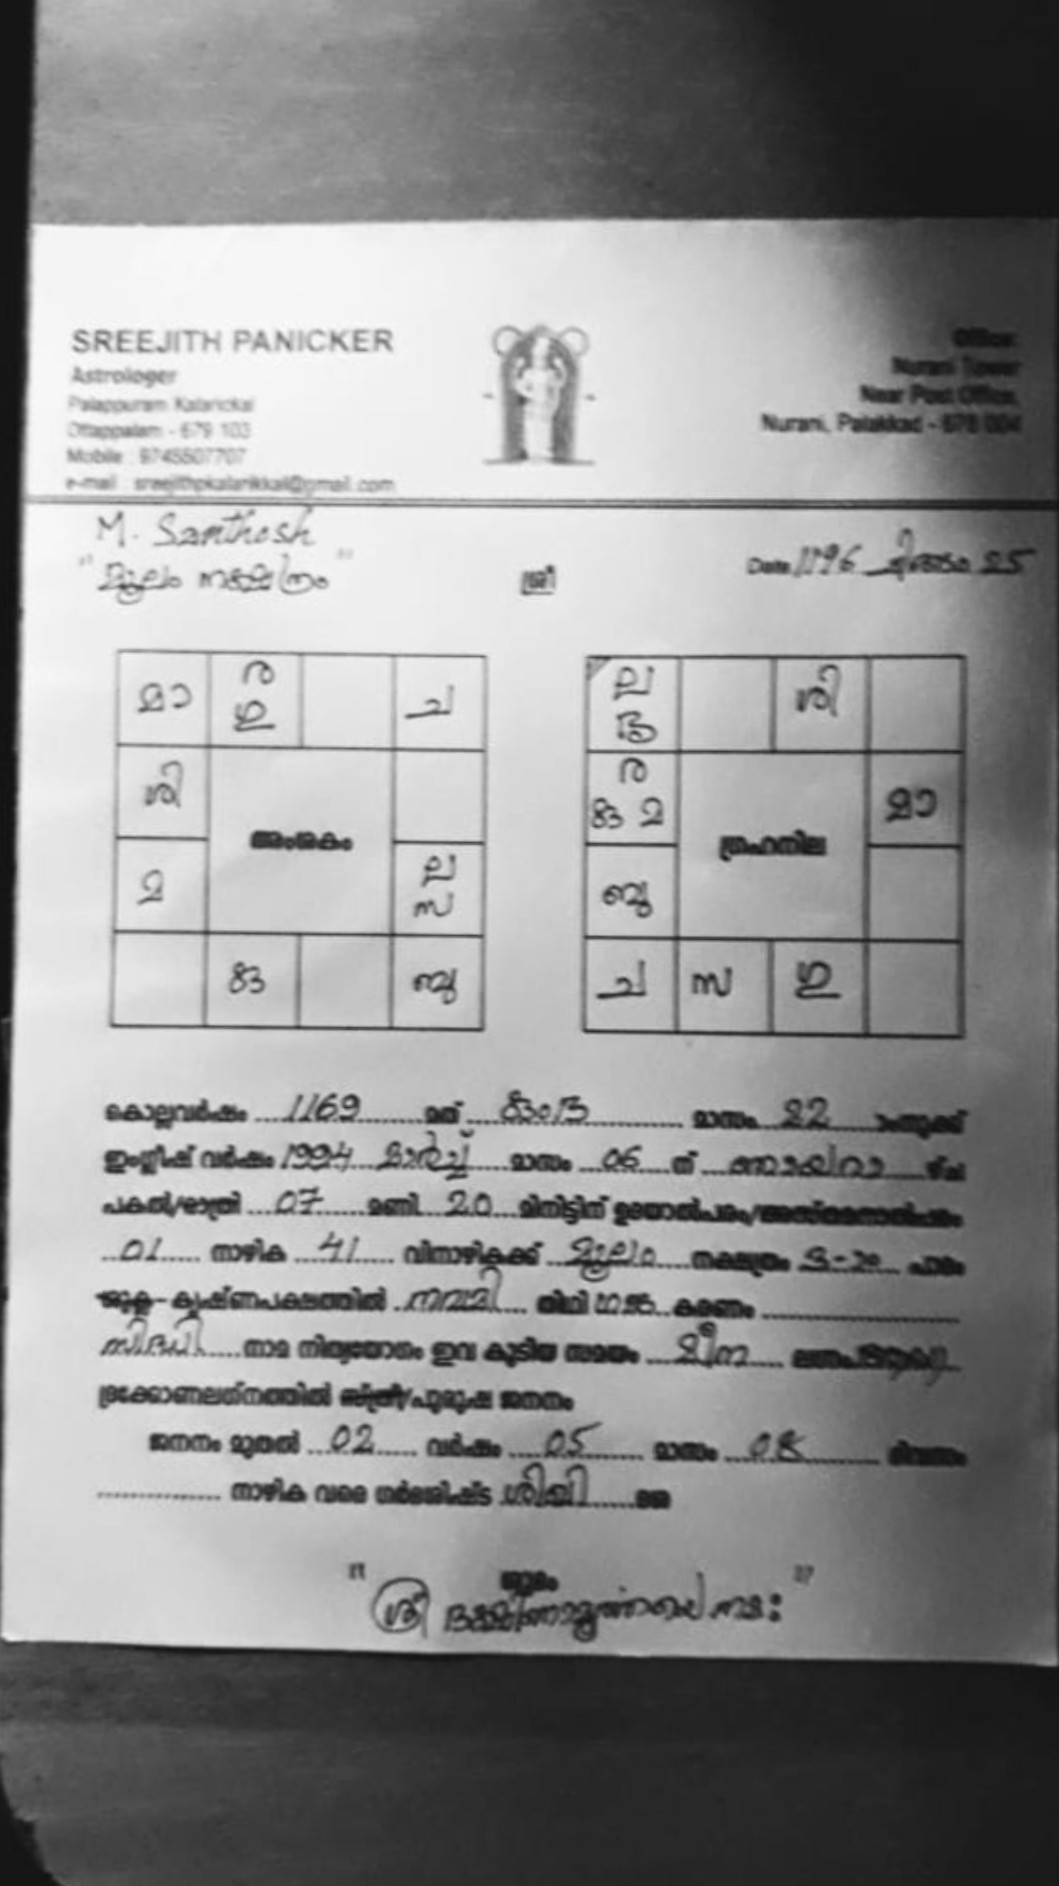 SREEJITH PANICKER
Astrologer
Palappuram Kalarickal
Ottappalam - 679 103
Mobile : 9745507707
e-mail : sreejithpkalarikkal@gmail.com
Office:
Nurani Tower
Near Post Office,
Nurani, Palakkad - 678 004
M. Santhosh
"മൂലം നക്ഷത്രം"
ശ്രീ
Date 1196 ചിങ്ങം 25
മാ ര ഗു ച
ശി
അംശകം
മ ല സ
ബു
ല ശി
ര മ
ഗ്രഹനില
മാ
ബു
ച സ ഗു
കൊല്ലവർഷം 1169 മത് കുംഭ മാസം 22 ാംതേക്ക്
ഇംഗ്ലീഷ് വർഷം 1994 മാർച്ച് മാസം 06 ന് ഞായറാ ഴ്ച
പകൽ/രാത്രി 07 മണി 20 മിനിട്ടിന് ഉദയാൽപരം/അസ്തമനാൽപരം
01 നാഴിക 41 വിനാഴികക്ക് മൂലം നക്ഷത്രം പാദം
ശുക്ല - കൃഷ്ണപക്ഷത്തിൽ നവമി തിഥി ഗജ കരണം
സിദ്ധി നാമ നിത്യയോഗം ഇവ കൂടിയ സമയം മീന
ദ്രക്കോണലഗ്നത്തിൽ സ്ത്രീ/പുരുഷ ജനനം
ജനനം മുതൽ 02 വർഷം 05 മാസം 08 ദിവസം
നാഴിക വരെ ഗർഭശിഷ്ട ശിഖി ദശ
ശുഭം
"ശ്രീ ദക്ഷിണാമൂർത്തയെ നമ:"